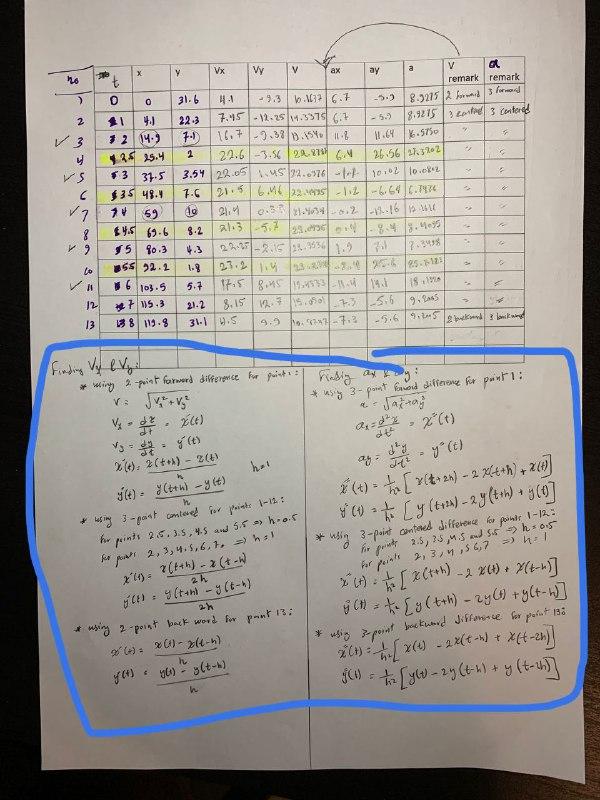 no t x y Vx Vy V ax ay a V remark a remark
1 0 0 31.6 4.1 -9.3 10.1637 6.7 -5.9 8.9275 2 forward 3 forward
2 1 4.1 22.3 7.45 -12.25 14.3375 6.7 -5.9 8.9275 3 centered 3 centered
3 2 14.9 7.1 16.7 -9.38 11.8 11.64 16.5750 " "
4 2.5 25.4 2 22.6 -3.56 22.8787 6.4 26.56 27.3202 " "
5 3 37.5 3.54 22.05 1.45 22.0976 10.02 " "
6 3.5 48.4 7.6 21.5 6.46 22.4495 -1.2 -6.64 " "
7 4 59 10 21.4 -0.2 " "
8 4.5 69.6 8.2 21.3 -5.7 -8.4 " "
9 5 80.3 4.3 22.25 -2.15 22.3536 1.9 7.1 7.3498 " "
10 5.5 92.2 1.8 23.2 1.4 25.6 " "
11 6 103.5 5.7 17.5 8.45 " "
12 7 115.3 21.2 8.15 12.7 -7.3 -5.6 9.2005 " "
13 8 119.8 31.1 4.5 9.9 -7.3 -5.6 2 backward 3 backward
Finding Vx & Vy:
* using 2-point forward difference for point 1:
V = √Vx² + Vy²
Vx = dx/dt = x'(t)
Vy = dy/dt = y'(t)
x'(t) = x(t+h) - x(t) / h
h=1
y'(t) = y(t+h) - y(t) / h
* using 3-point centered for points 1-12:
for points 2.5, 3.5, 4.5 and 5.5 => h=0.5
for points 2, 3, 4, 5, 6, 7, => h=1
x'(t) = x(t+h) - x(t-h) / 2h
y'(t) = y(t+h) - y(t-h) / 2h
* using 2-point back word for point 13:
x'(t) = x(t) - x(t-h) / h
y'(t) = y(t) - y(t-h) / h
Finding ax & ay:
* using 3-point forward difference for point 1:
a = √ax² + ay²
ax = d²x/dt² = x''(t)
ay = d²y/dt² = y''(t)
x''(t) = 1/h² [x(t+2h) - 2x(t+h) + x(t)]
y''(t) = 1/h² [y(t+2h) - 2y(t+h) + y(t)]
* using 3-point centered difference for points 1-12:
for points 2.5, 3.5, 4.5 and 5.5 => h=0.5
for points 2, 3, 4, 5 6, 7 => h=1
x''(t) = 1/h² [x(t+h) - 2x(t) + x(t-h)]
y''(t) = 1/h² [y(t+h) - 2y(t) + y(t-h)]
* using 3-point backward difference for point 13:
x''(t) = 1/h² [x(t) - 2x(t-h) + x(t-2h)]
y''(t) = 1/h² [y(t) - 2y(t-h) + y(t-2h)]